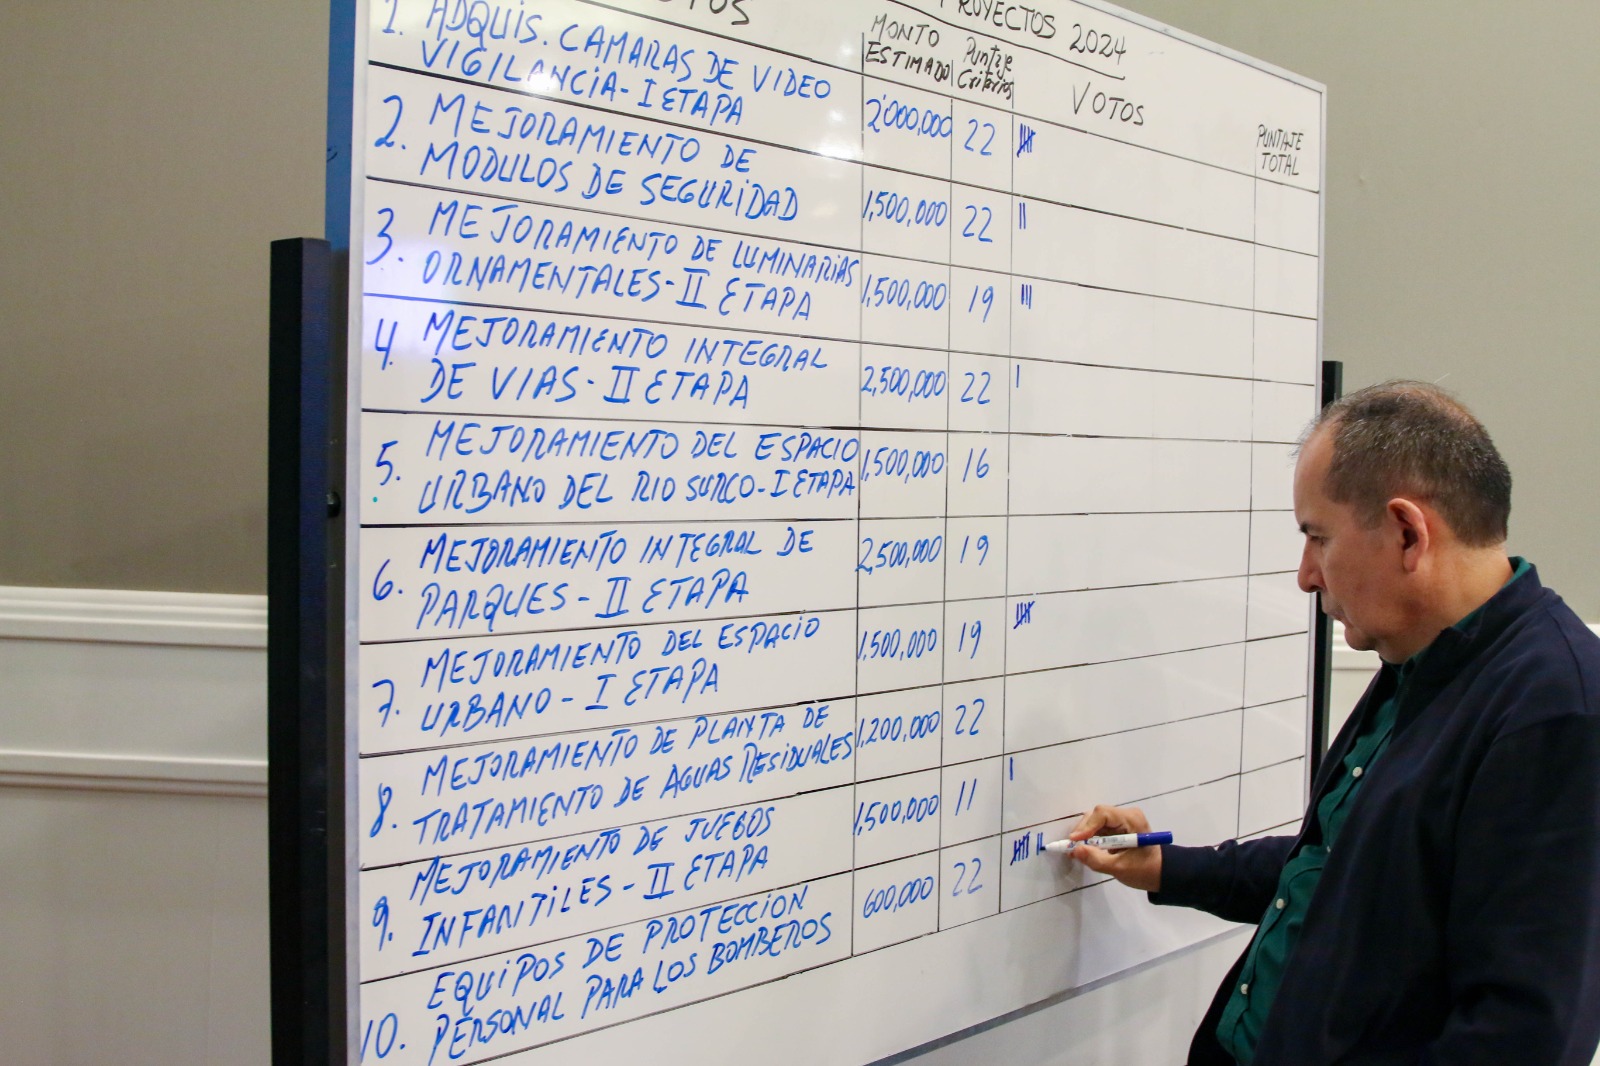 PROYECTOS 2024
MONTO ESTIMADO
Puntaje Criterios
VOTOS
PUNTAJE TOTAL
1. ADQUIS. CAMARAS DE VIDEO
VIGILANCIA - I ETAPA
2'000,000 22
2. MEJORAMIENTO DE
MODULOS DE SEGURIDAD
1,500,000 22
3. MEJORAMIENTO DE LUMINARIAS
ORNAMENTALES - II ETAPA
1,500,000 19
4. MEJORAMIENTO INTEGRAL
DE VIAS - II ETAPA
2,500,000 22
5. MEJORAMIENTO DEL ESPACIO
URBANO DEL RIO SURCO - I ETAPA
1,500,000 16
6. MEJORAMIENTO INTEGRAL DE
PARQUES - II ETAPA
2,500,000 19
7. MEJORAMIENTO DEL ESPACIO
URBANO - I ETAPA
1,500,000 19
8. MEJORAMIENTO DE PLANTA DE
TRATAMIENTO DE AGUAS RESIDUALES
1,200,000 22
9. MEJORAMIENTO DE JUEGOS
INFANTILES - II ETAPA
1,500,000 11
10. EQUIPOS DE PROTECCION
PERSONAL PARA LOS BOMBEROS
600,000 22